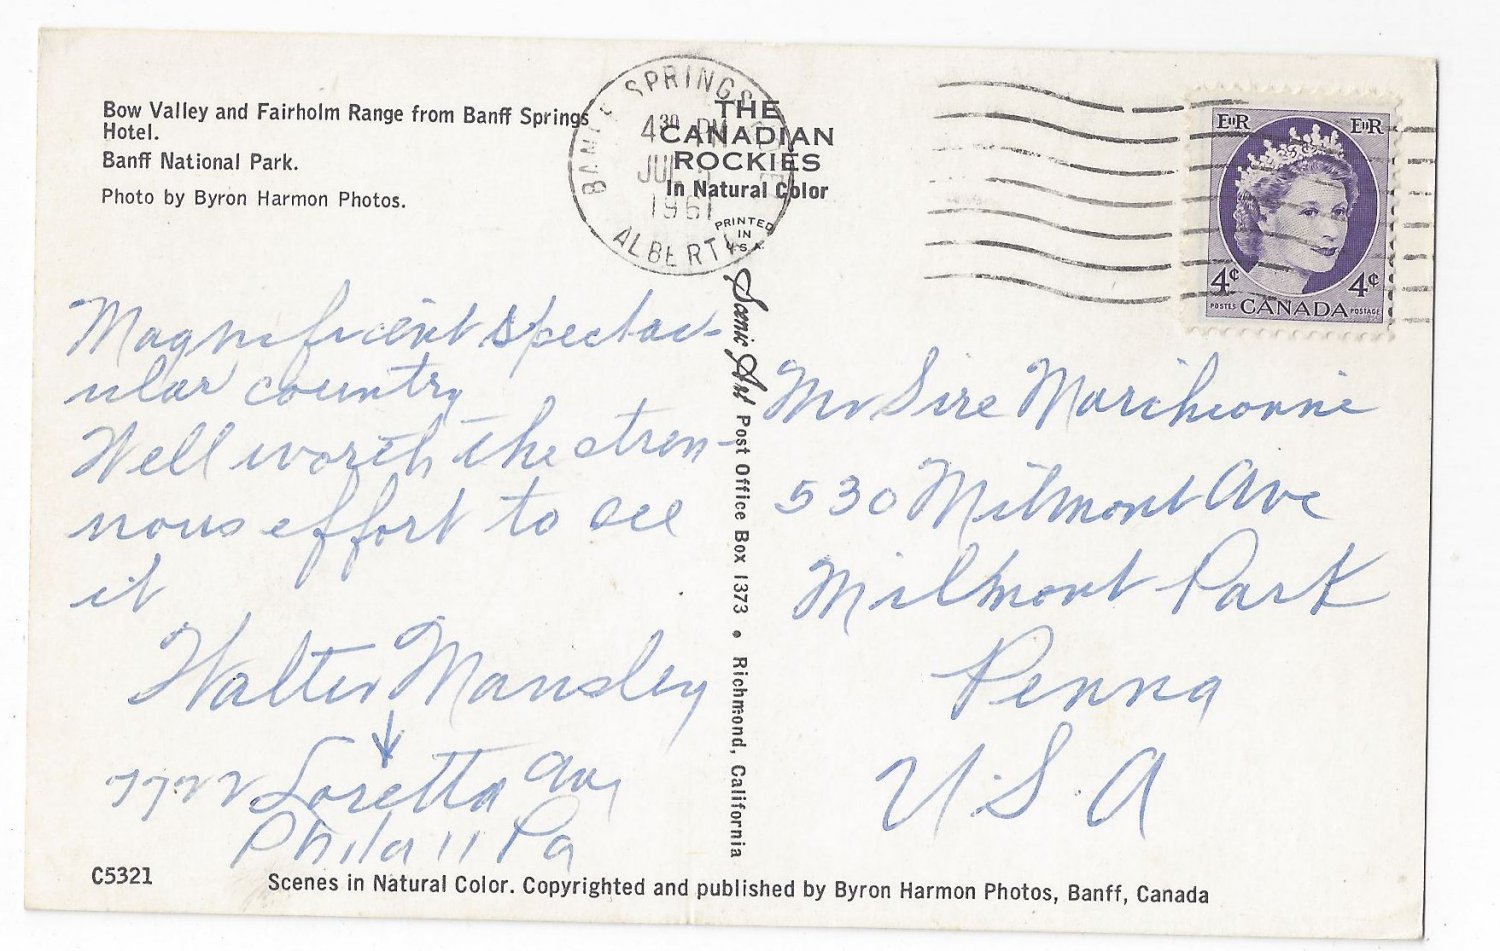 Bow Valley and Fairholm Range from Banff Springs
Hotel.
Banff National Park.
Photo by Byron Harmon Photos.
BANFF SPRINGS
4 30 PM
JUL
1961
ALBERTA
THE
CANADIAN
ROCKIES
In Natural Color
PRINTED
IN
U.S.A.
EIIR EIIR
4¢ 4¢
POSTES CANADA POSTAGE
Magnificent spectac-
ular country
Well worth the stren-
uous effort to see
it
Walter Mansley
7722 Loretta Ave
Phila 11 Pa
Scenic Art Post Office Box 1373 • Richmond, California
Mr Sire Marchionne
530 Milmont Ave
Milmont Park
Penna
U.S.A
C5321
Scenes in Natural Color. Copyrighted and published by Byron Harmon Photos, Banff, Canada